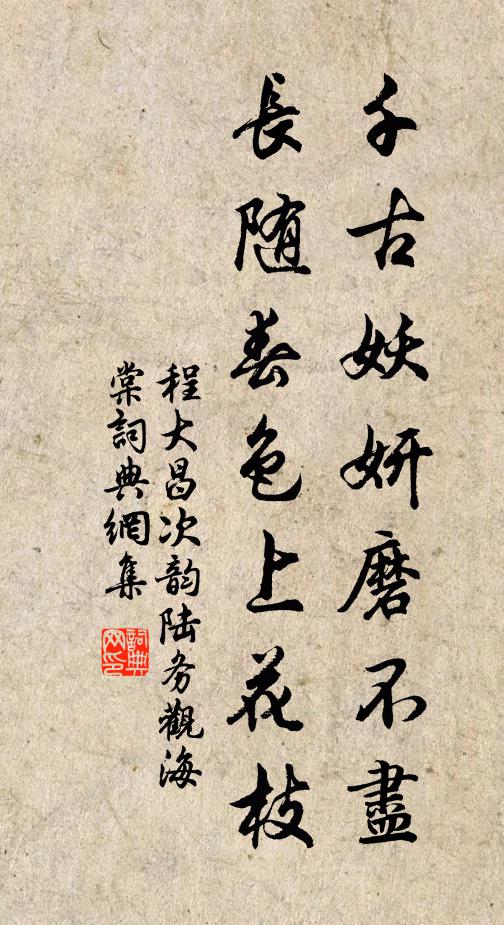 千古妖妍磨不盡
長随春色上花枝
程大昌次韵陆务觀海
棠詞典網集
詞典
网印